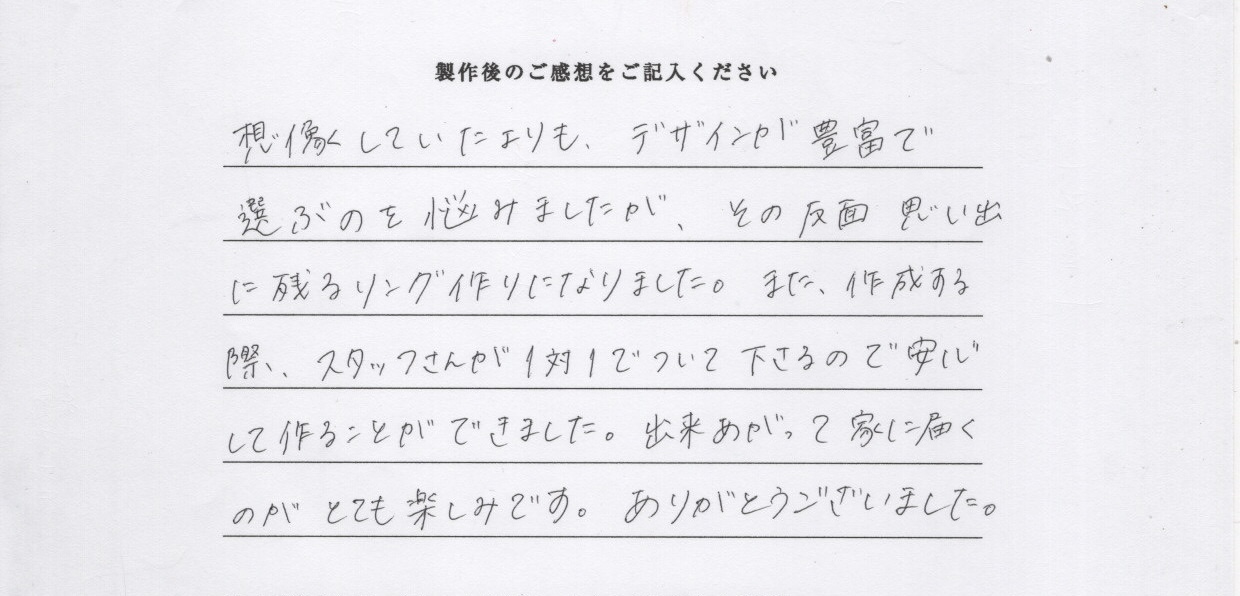 製作後のご感想をご記入ください
想像していたよりも、デザインが豊富で
選ぶのを悩みましたが、その反面 思い出
に残るリング作りになりました。また、作成する
際、スタッフさんが1対1でついて下さるので安心
して作ることができました。出来あがって家に届く
のがとても楽しみです。ありがとうございました。